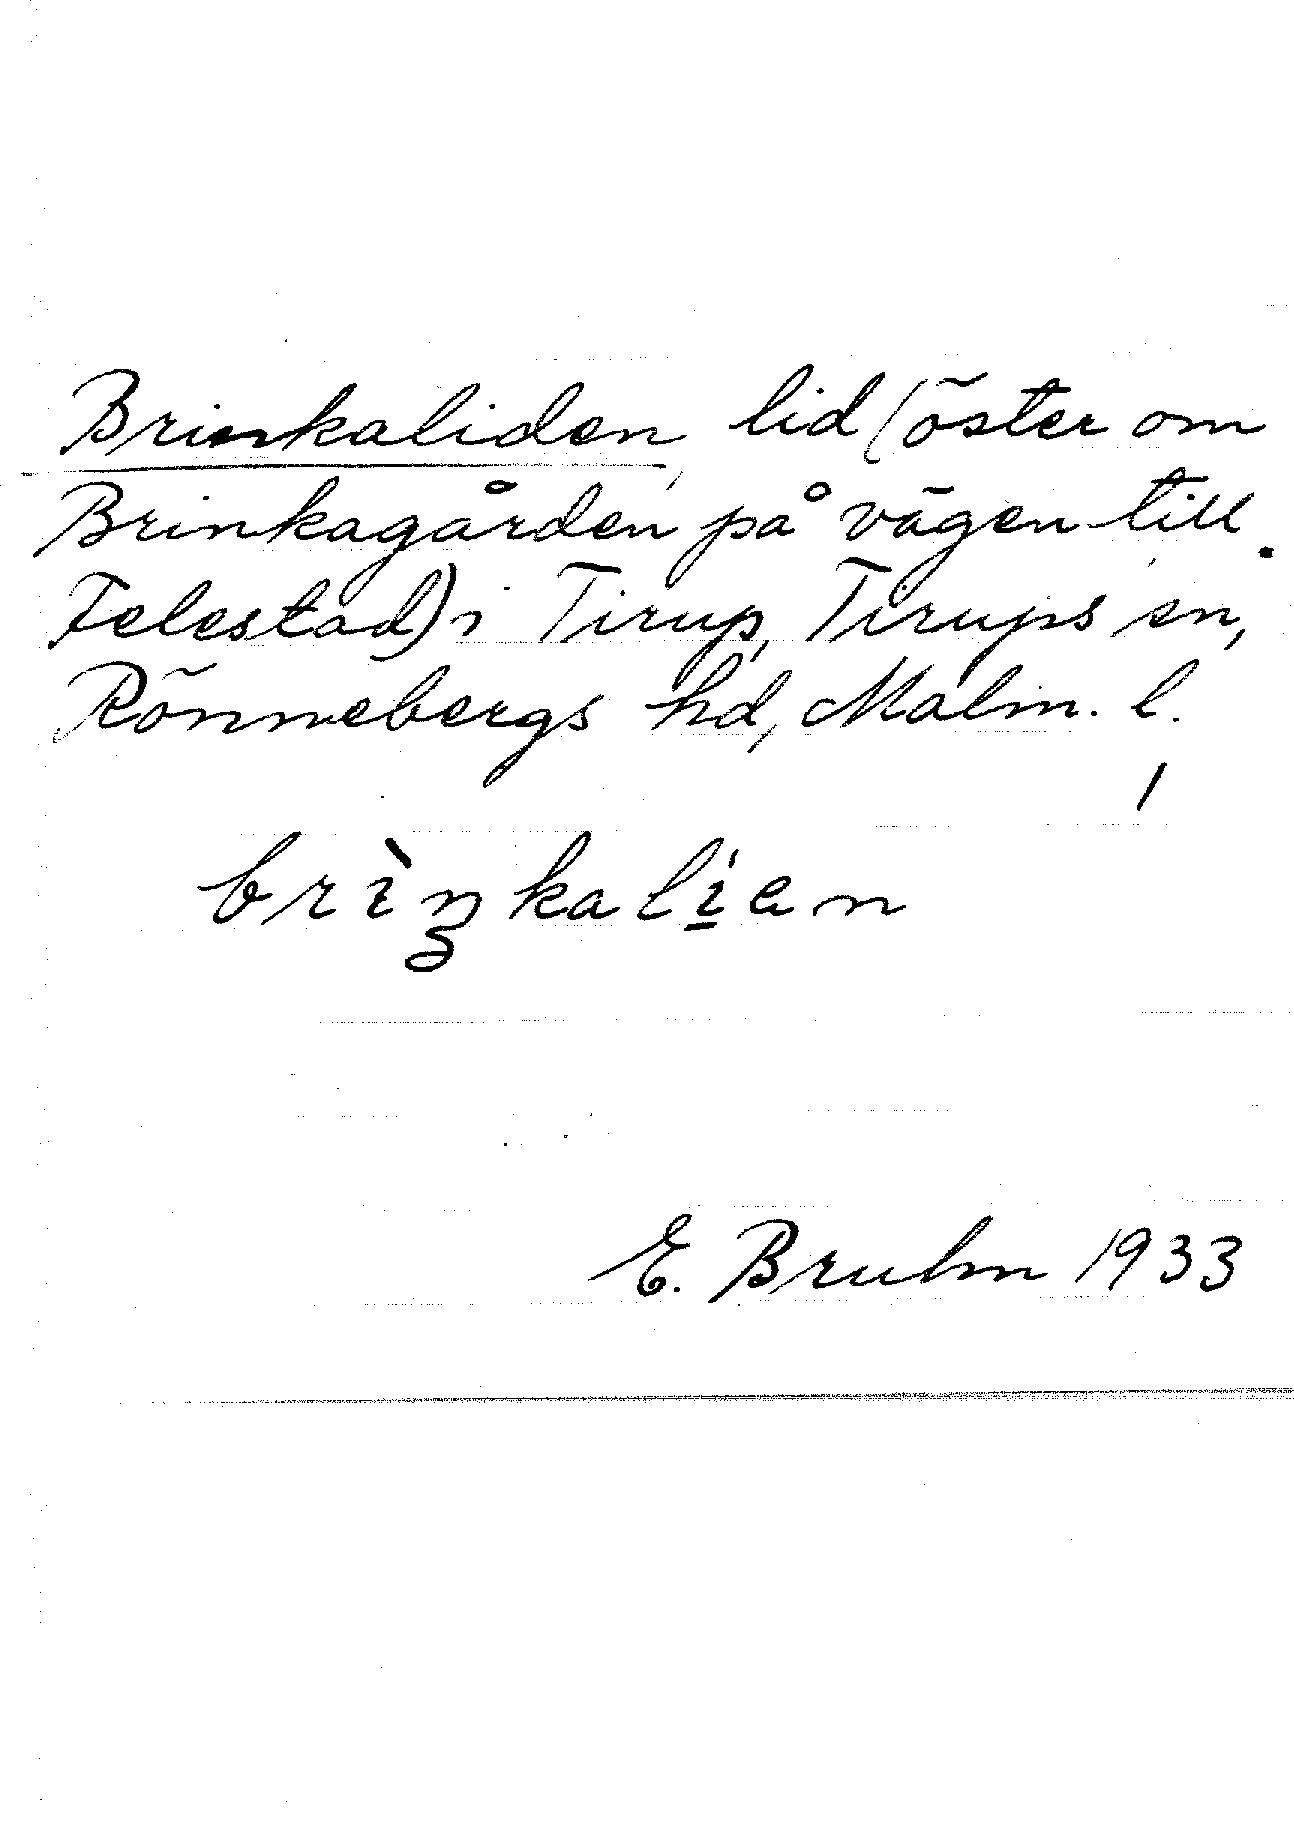 Brinkaliden, lid (öster om
Brinkagården på vägen till
Felestad) i Tirup, Tirups sn,
Rönnebergs hd, Malm. l.
brìŋkali̱en
E. Bruhn 1933